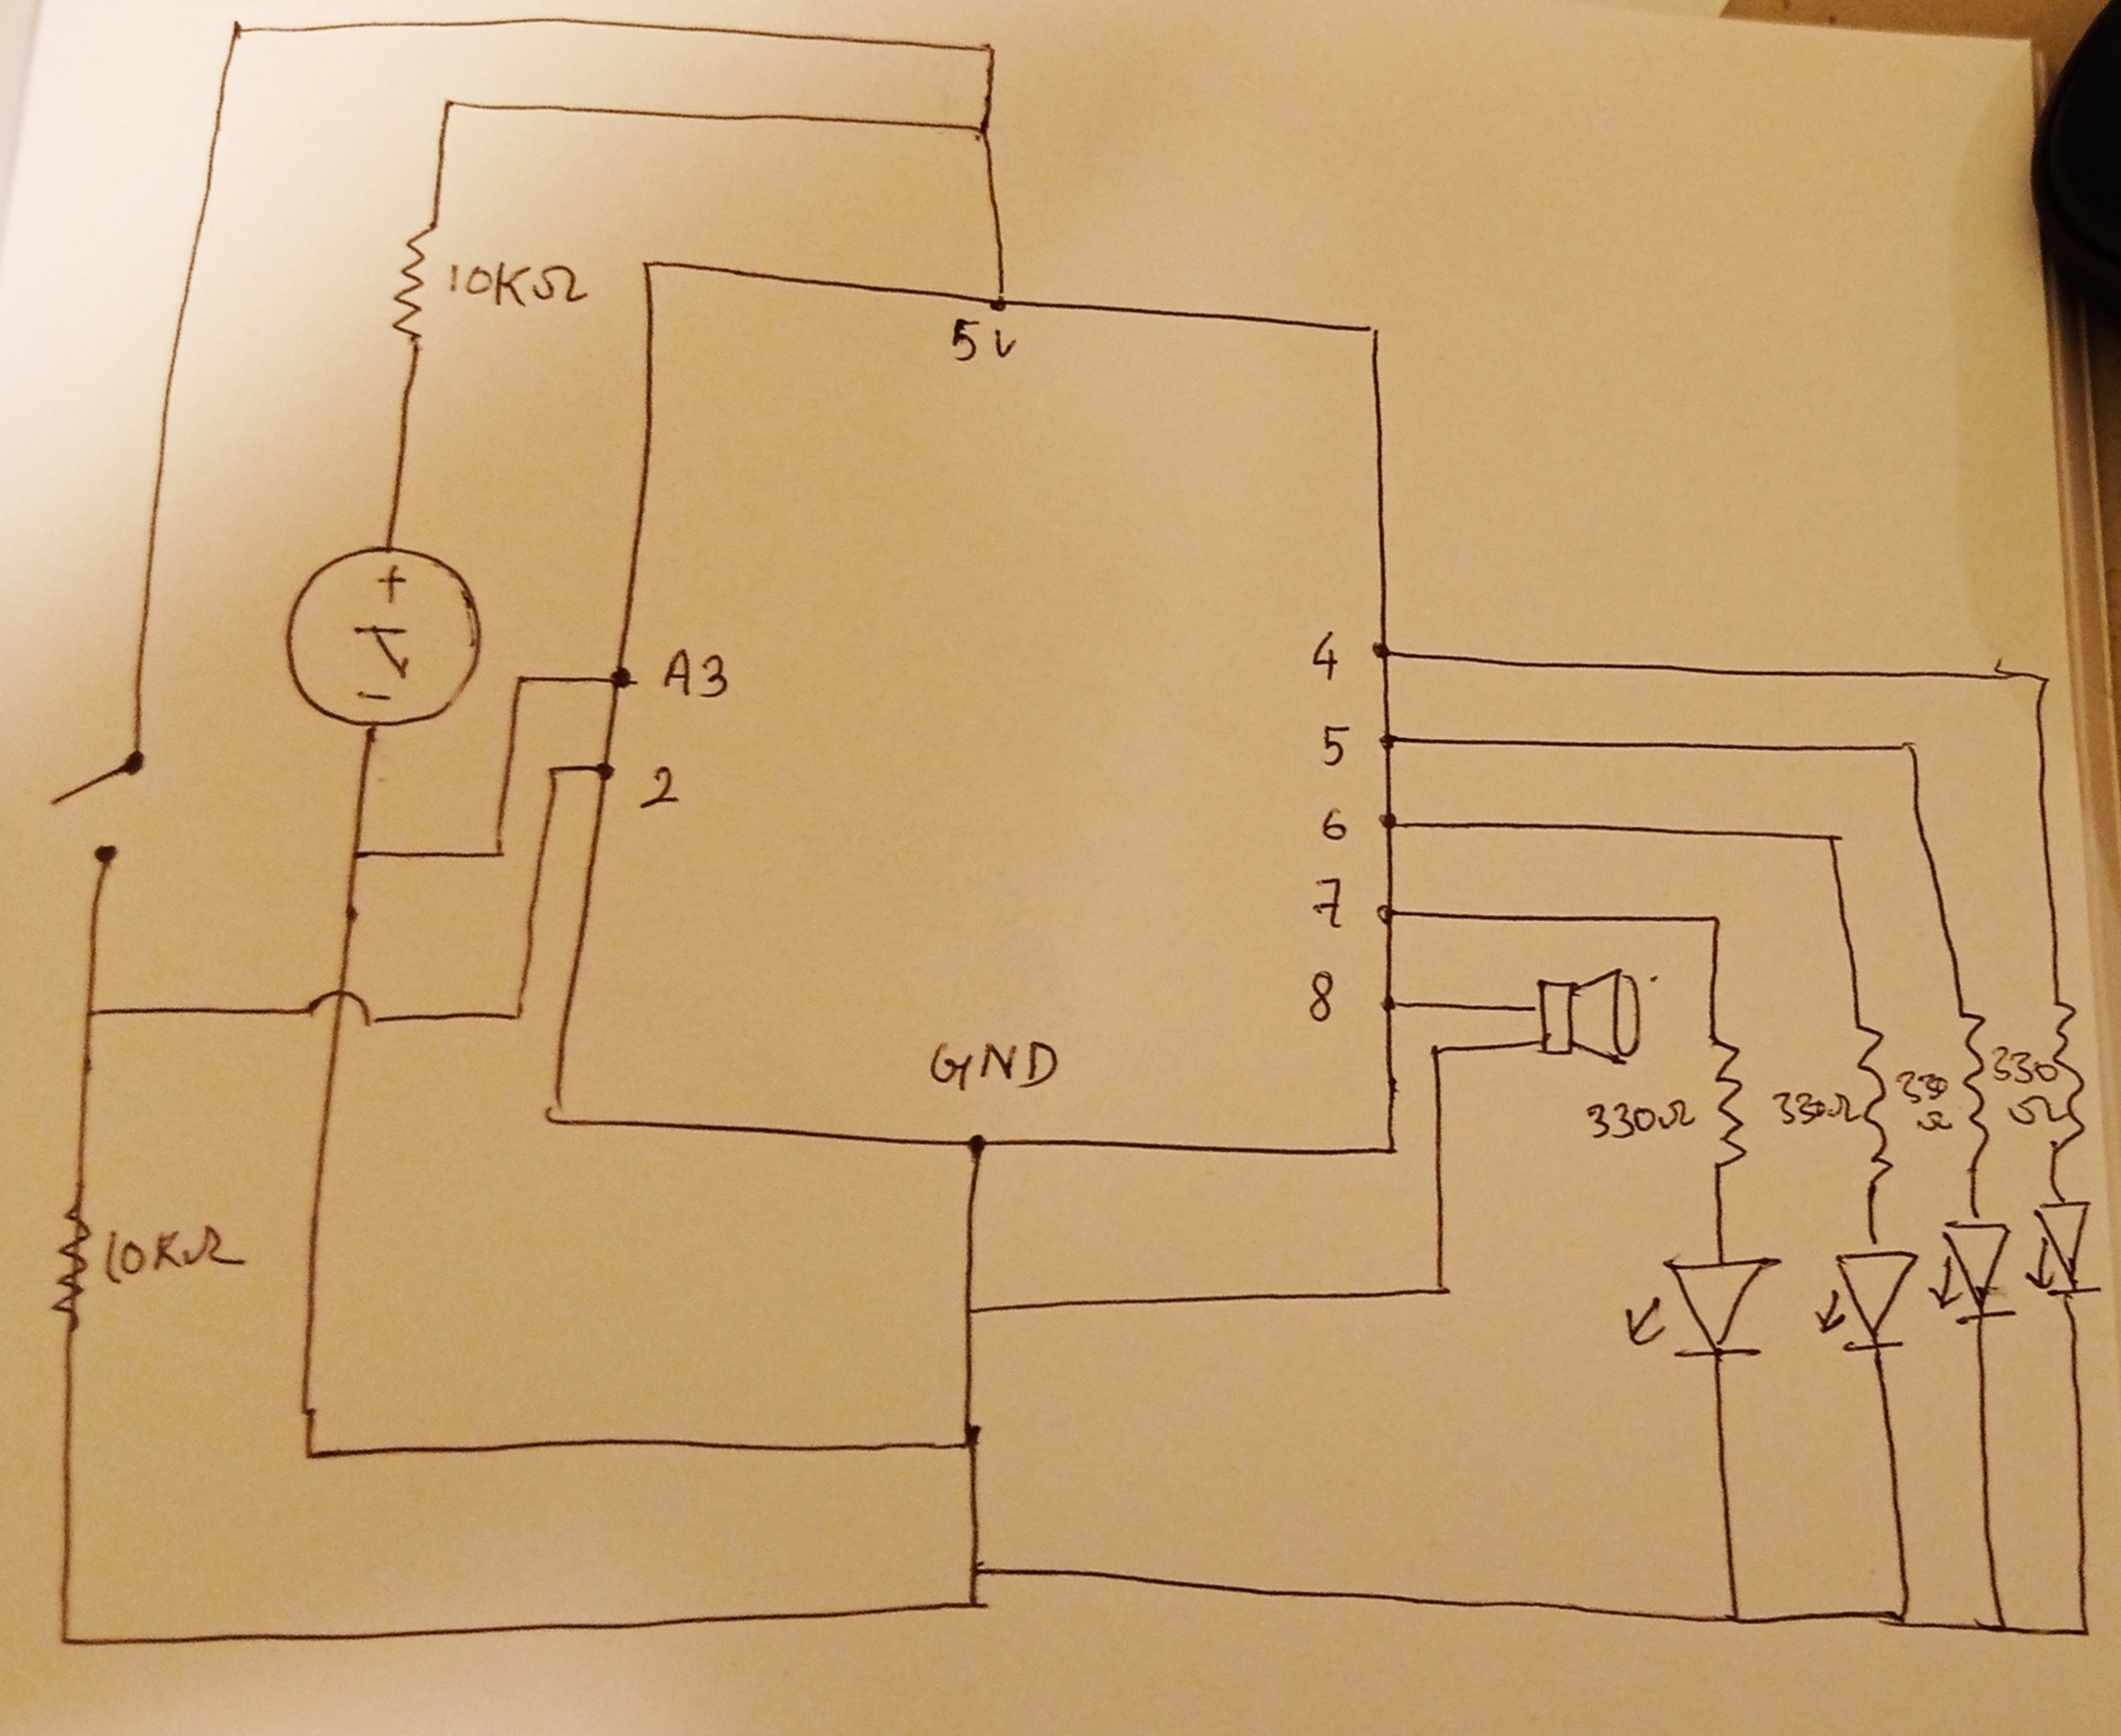 10KΩ
5v
+
V
-
A3
2
4
5
6
7
8
GND
330Ω
330Ω
330
Ω
330
Ω
10KΩ